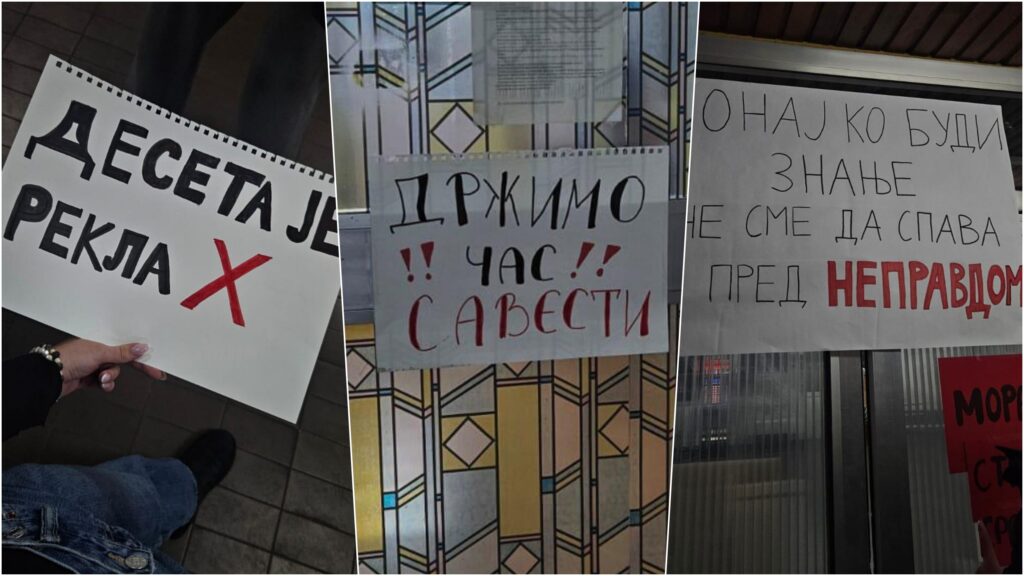 ДЕСЕТА ЈЕ
РЕКЛА X
ДРЖИМО
!! ЧАС !!
САВЕСТИ
ОНАЈ КО БУДИ
ЗНАЊЕ
НЕ СМЕ ДА СПАВА
ПРЕД НЕПРАВДОМ